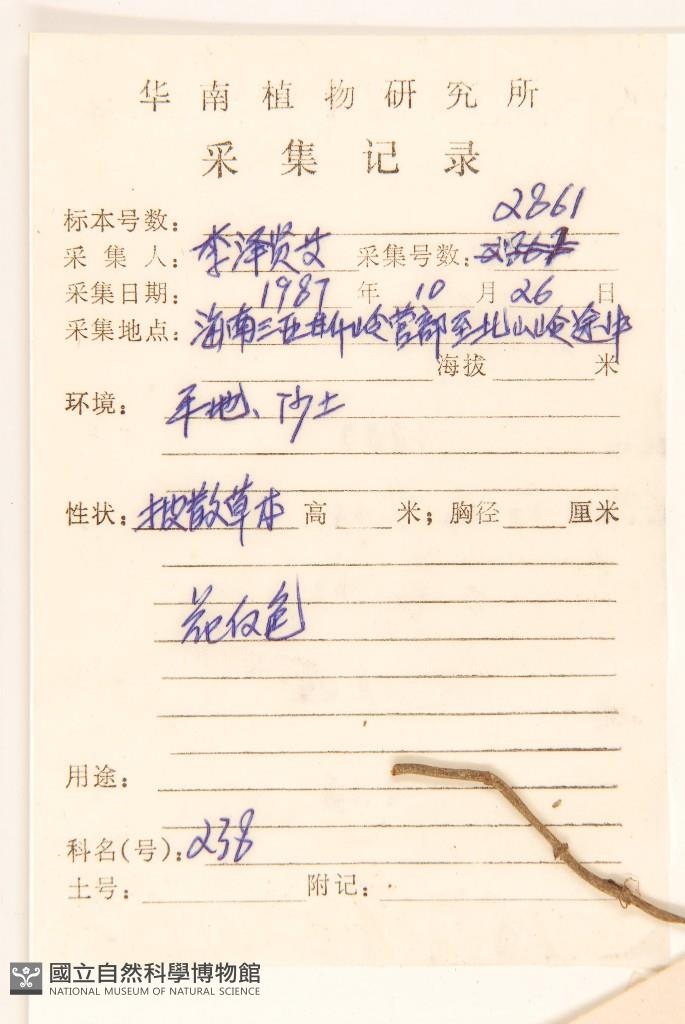 华南植物研究所
采集记录
2861
标本号数:
采集人: 李泽贤 采集号数:
采集日期: 1987 年 10 月 26 日
采集地点: 海南三亚 岭营部至北山岭途中
海拔 米
环境: 平地、沙土
性状: 披散草本 高 米; 胸径 厘米
花 色
用途:
科名(号): 238
土号: 附记:
國立自然科學博物館
NATIONAL MUSEUM OF NATURAL SCIENCE